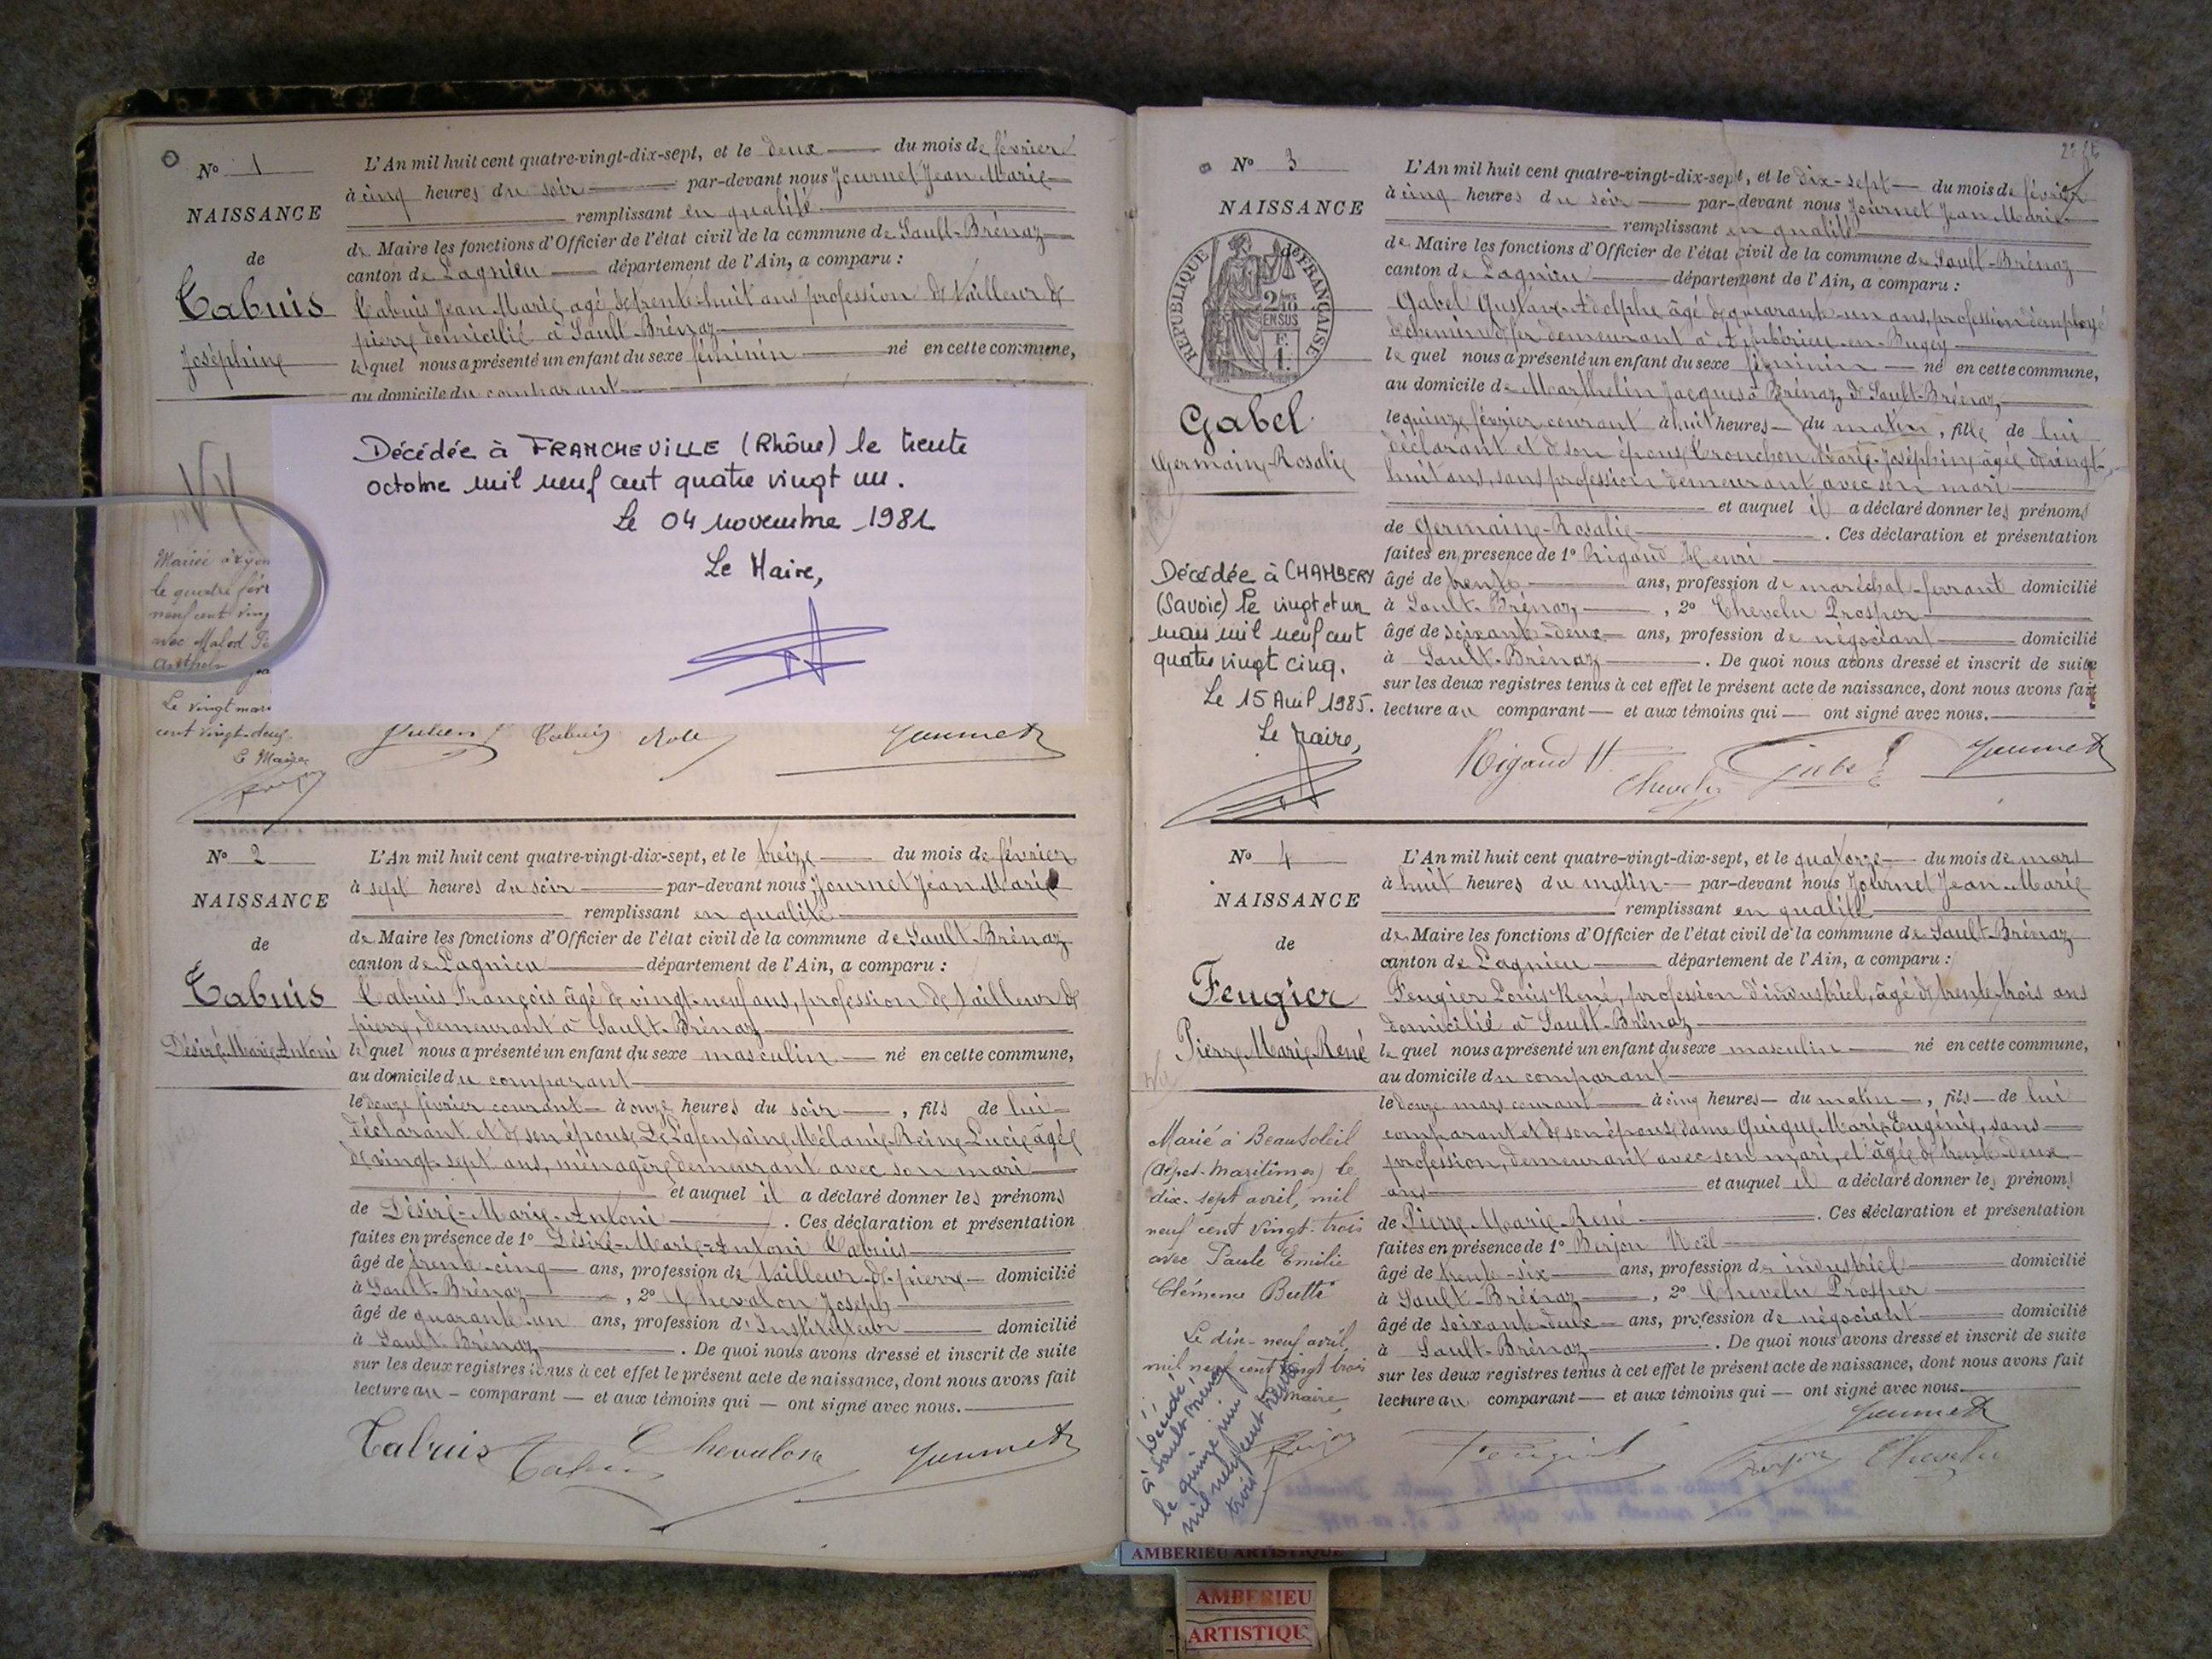 N° 1
NAISSANCE
de
Tabuis
Joséphine
L'An mil huit cent quatre-vingt-dix-sept, et le deux du mois de février
à cinq heures du soir par-devant nous Journet Jean Marie
remplissant en qualité
de Maire les fonctions d'Officier de l'état civil de la commune de Sault-Brénaz
canton de Lagnieu département de l'Ain, a comparu :
Tabuis Jean Marie agé de trente-huit ans profession de tailleur de
pierre domicilié à Sault-Brénaz
lequel nous a présenté un enfant du sexe féminin né en cette commune,
au domicile du comparant
Décédée à FRANCHEVILLE (Rhône) le trente
octobre mil neuf cent quatre vingt un.
Le 04 novembre 1981
Le Maire,
Mariée à Lyon
le quatre
neuf cent
avec
Le vingt
cent vingt-deux.
Le Maire
Tabuis
Journet
N° 2
NAISSANCE
de
Tabuis
Désiré-Marie-Antoni
L'An mil huit cent quatre-vingt-dix-sept, et le treize du mois de février
à sept heures du soir par-devant nous Journet Jean Marie
remplissant en qualité
de Maire les fonctions d'Officier de l'état civil de la commune de Sault-Brénaz
canton de Lagnieu département de l'Ain, a comparu :
Tabuis François âgé de vingt-neuf ans, profession de tailleur de
pierre, demeurant à Sault-Brénaz
lequel nous a présenté un enfant du sexe masculin né en cette commune,
au domicile du comparant
le douze février courant à onze heures du soir, fils de lui
déclarant et de son épouse De Lafontaine Mélanie-Reine-Lucie âgée
de vingt-sept ans, ménagère demeurant avec son mari
et auquel il a déclaré donner les prénoms
de Désiré-Marie-Antoni. Ces déclaration et présentation
faites en présence de 1° Désiré-Marie-Antoni Tabuis
âgé de trente-cinq ans, profession de tailleur-de-pierre domicilié
à Sault-Brénaz, 2° Chevalon Joseph
âgé de quarante-un ans, profession d'Instituteur domicilié
à Sault-Brénaz. De quoi nous avons dressé et inscrit de suite
sur les deux registres tenus à cet effet le présent acte de naissance, dont nous avons fait
lecture au comparant et aux témoins qui ont signé avec nous.
Tabuis Chevalon Journet
N° 3
NAISSANCE
RÉPUBLIQUE FRANÇAISE
de
2/10
EN SUS
Gabel
Germaine-Rosalie
L'An mil huit cent quatre-vingt-dix-sept, et le dix-sept du mois de février
à cinq heures du soir par-devant nous Journet Jean Marie
remplissant en qualité
de Maire les fonctions d'Officier de l'état civil de la commune de Sault-Brénaz
canton de Lagnieu département de l'Ain, a comparu :
Gabel Gustave-Adolphe âgé de quarante-un ans, profession d'employé
de chemin de fer demeurant à Ambérieu-en-Bugey
lequel nous a présenté un enfant du sexe féminin né en cette commune,
au domicile de Marthelin Jacques à Brénaz, De Sault-Brénaz,
le quinze février courant à huit heures du matin, fille de lui
déclarant et de son épouse Tronchon Marie-Joséphine âgée de vingt-
huit ans, sans profession demeurant avec son mari
et auquel il a déclaré donner les prénoms
de Germaine-Rosalie. Ces déclaration et présentation
faites en presence de 1° Rigaud Henri
âgé de trente ans, profession de maréchal-ferrant domicilié
à Sault-Brénaz, 2° Chevelu Prosper
âgé de soixante-deux ans, profession de négociant domicilié
à Sault-Brénaz. De quoi nous avons dressé et inscrit de suite
sur les deux registres tenus à cet effet le présent acte de naissance, dont nous avons fait
lecture au comparant et aux témoins qui ont signé avec nous.
Décédée à CHAMBERY
(Savoie) le vingt et un
mars mil neuf cent
quatre vingt cinq.
Le 15 Avril 1985.
Le Maire,
Rigaud H. Chevelu Gabel Journet
N° 4
NAISSANCE
de
Feugier
Pierre-Marie-René
L'An mil huit cent quatre-vingt-dix-sept, et le quatorze du mois de mars
à huit heures du matin par-devant nous Journet Jean-Marie
remplissant en qualité
de Maire les fonctions d'Officier de l'état civil de la commune de Sault-Brénaz
canton de Lagnieu département de l'Ain, a comparu :
Feugier Louis-René, profession d'industriel, âgé de trente-trois ans
domicilié à Sault-Brénaz
lequel nous a présenté un enfant du sexe masculin né en cette commune,
au domicile du comparant
le douze mars courant à cinq heures du matin, fils de lui
comparant et de son épouse dame Guigue Marie-Eugénie, sans
profession, demeurant avec son mari, et âgée de trente-deux
ans et auquel il a déclaré donner les prénoms
de Pierre-Marie-René. Ces déclaration et présentation
faites en présence de 1° Berjon Noël
âgé de trente-six ans, profession de industriel domicilié
à Sault-Brénaz, 2° Chevelu Prosper
âgé de soixante-deux ans, profession de négociant domicilié
à Sault-Brénaz. De quoi nous avons dressé et inscrit de suite
sur les deux registres tenus à cet effet le présent acte de naissance, dont nous avons fait
lecture au comparant et aux témoins qui ont signé avec nous.
Marié à Beausoleil
(Alpes-Maritimes) le
dix-sept avril, mil
neuf cent vingt-trois
avec Paule Emilie
Clémence Butti
Le dix-neuf avril
mil neuf cent vingt trois
maire,
Décédé
à Sault Brénaz
le quinze juin
mil neuf cent trente
trois
Journet
Feugier Berjon Chevelu
AMBERIEU ARTISTIQUE
AMBERIEU
ARTISTIQU